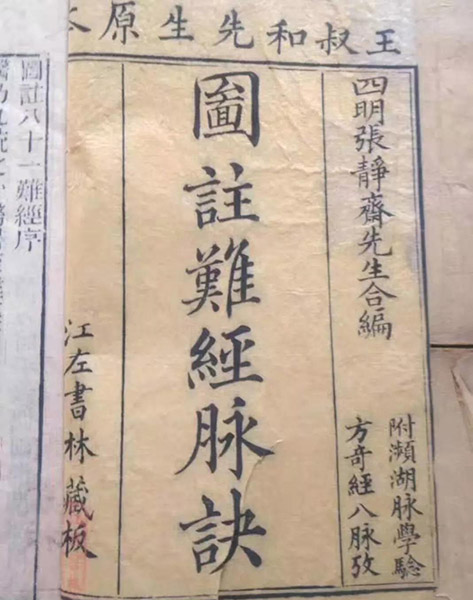 王叔和先生原本
四明張靜齋先生合編
附瀕湖脉學驗
方奇經八脉攷
圖註難經脉訣
江左書林藏板
圖註八十一難經序